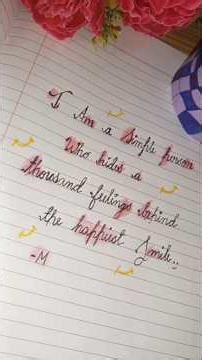 I Am a Simple person
Who hides a
thousand feelings behind
the happiest Smile..
-M